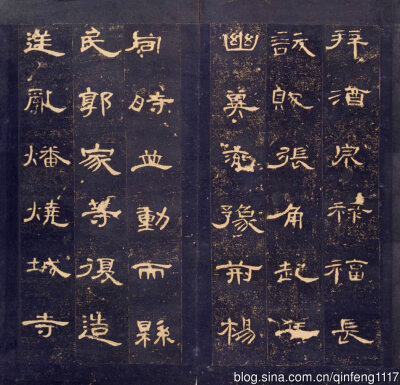 拜酒泉祿福長
訞賊張角起兵
幽冀兗豫荊楊
同時並動而縣
民郭家等復造
逆亂燔燒城寺
blog.sina.com.cn/qinfeng1117